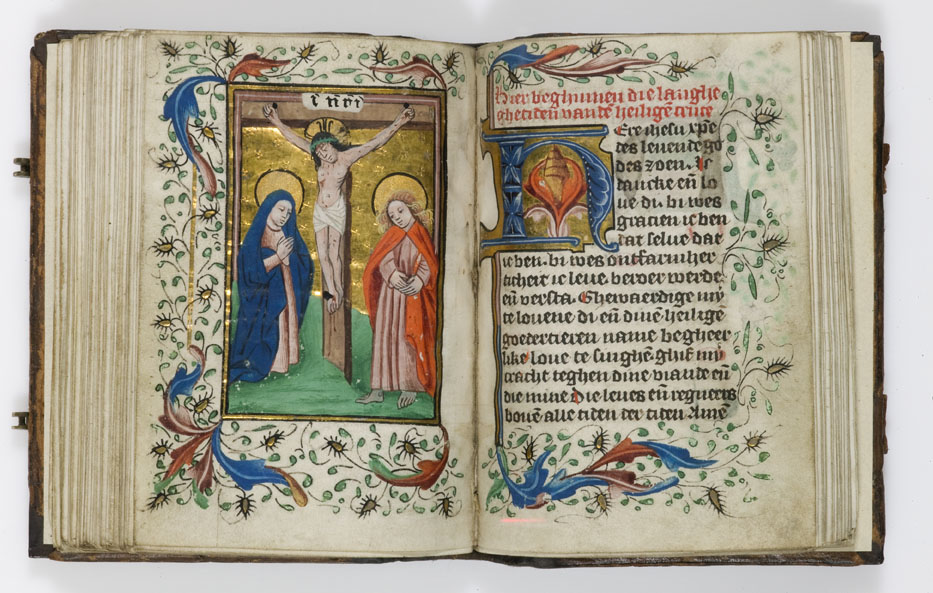 i nri
Hier beghinnen die langhe
ghetiden van dē heiligē cruce
HEre ihesu xpe
des levende go
des zoen. Ic
dancke eñ lo
ue di. bi wes
gracien ic ben
dat selue dat
ic ben. bi wes ontfarmher
tichede ic leue. beroer werde
eñ versta. Ghewaerdige my
te louene di eñ dinē heiligē
goedertieren name begheer
like loue te singhē. ghif mi
cracht teghen dine viande eñ
die mine die leues eñ regneers
bouē alle tiden der tiden Amē